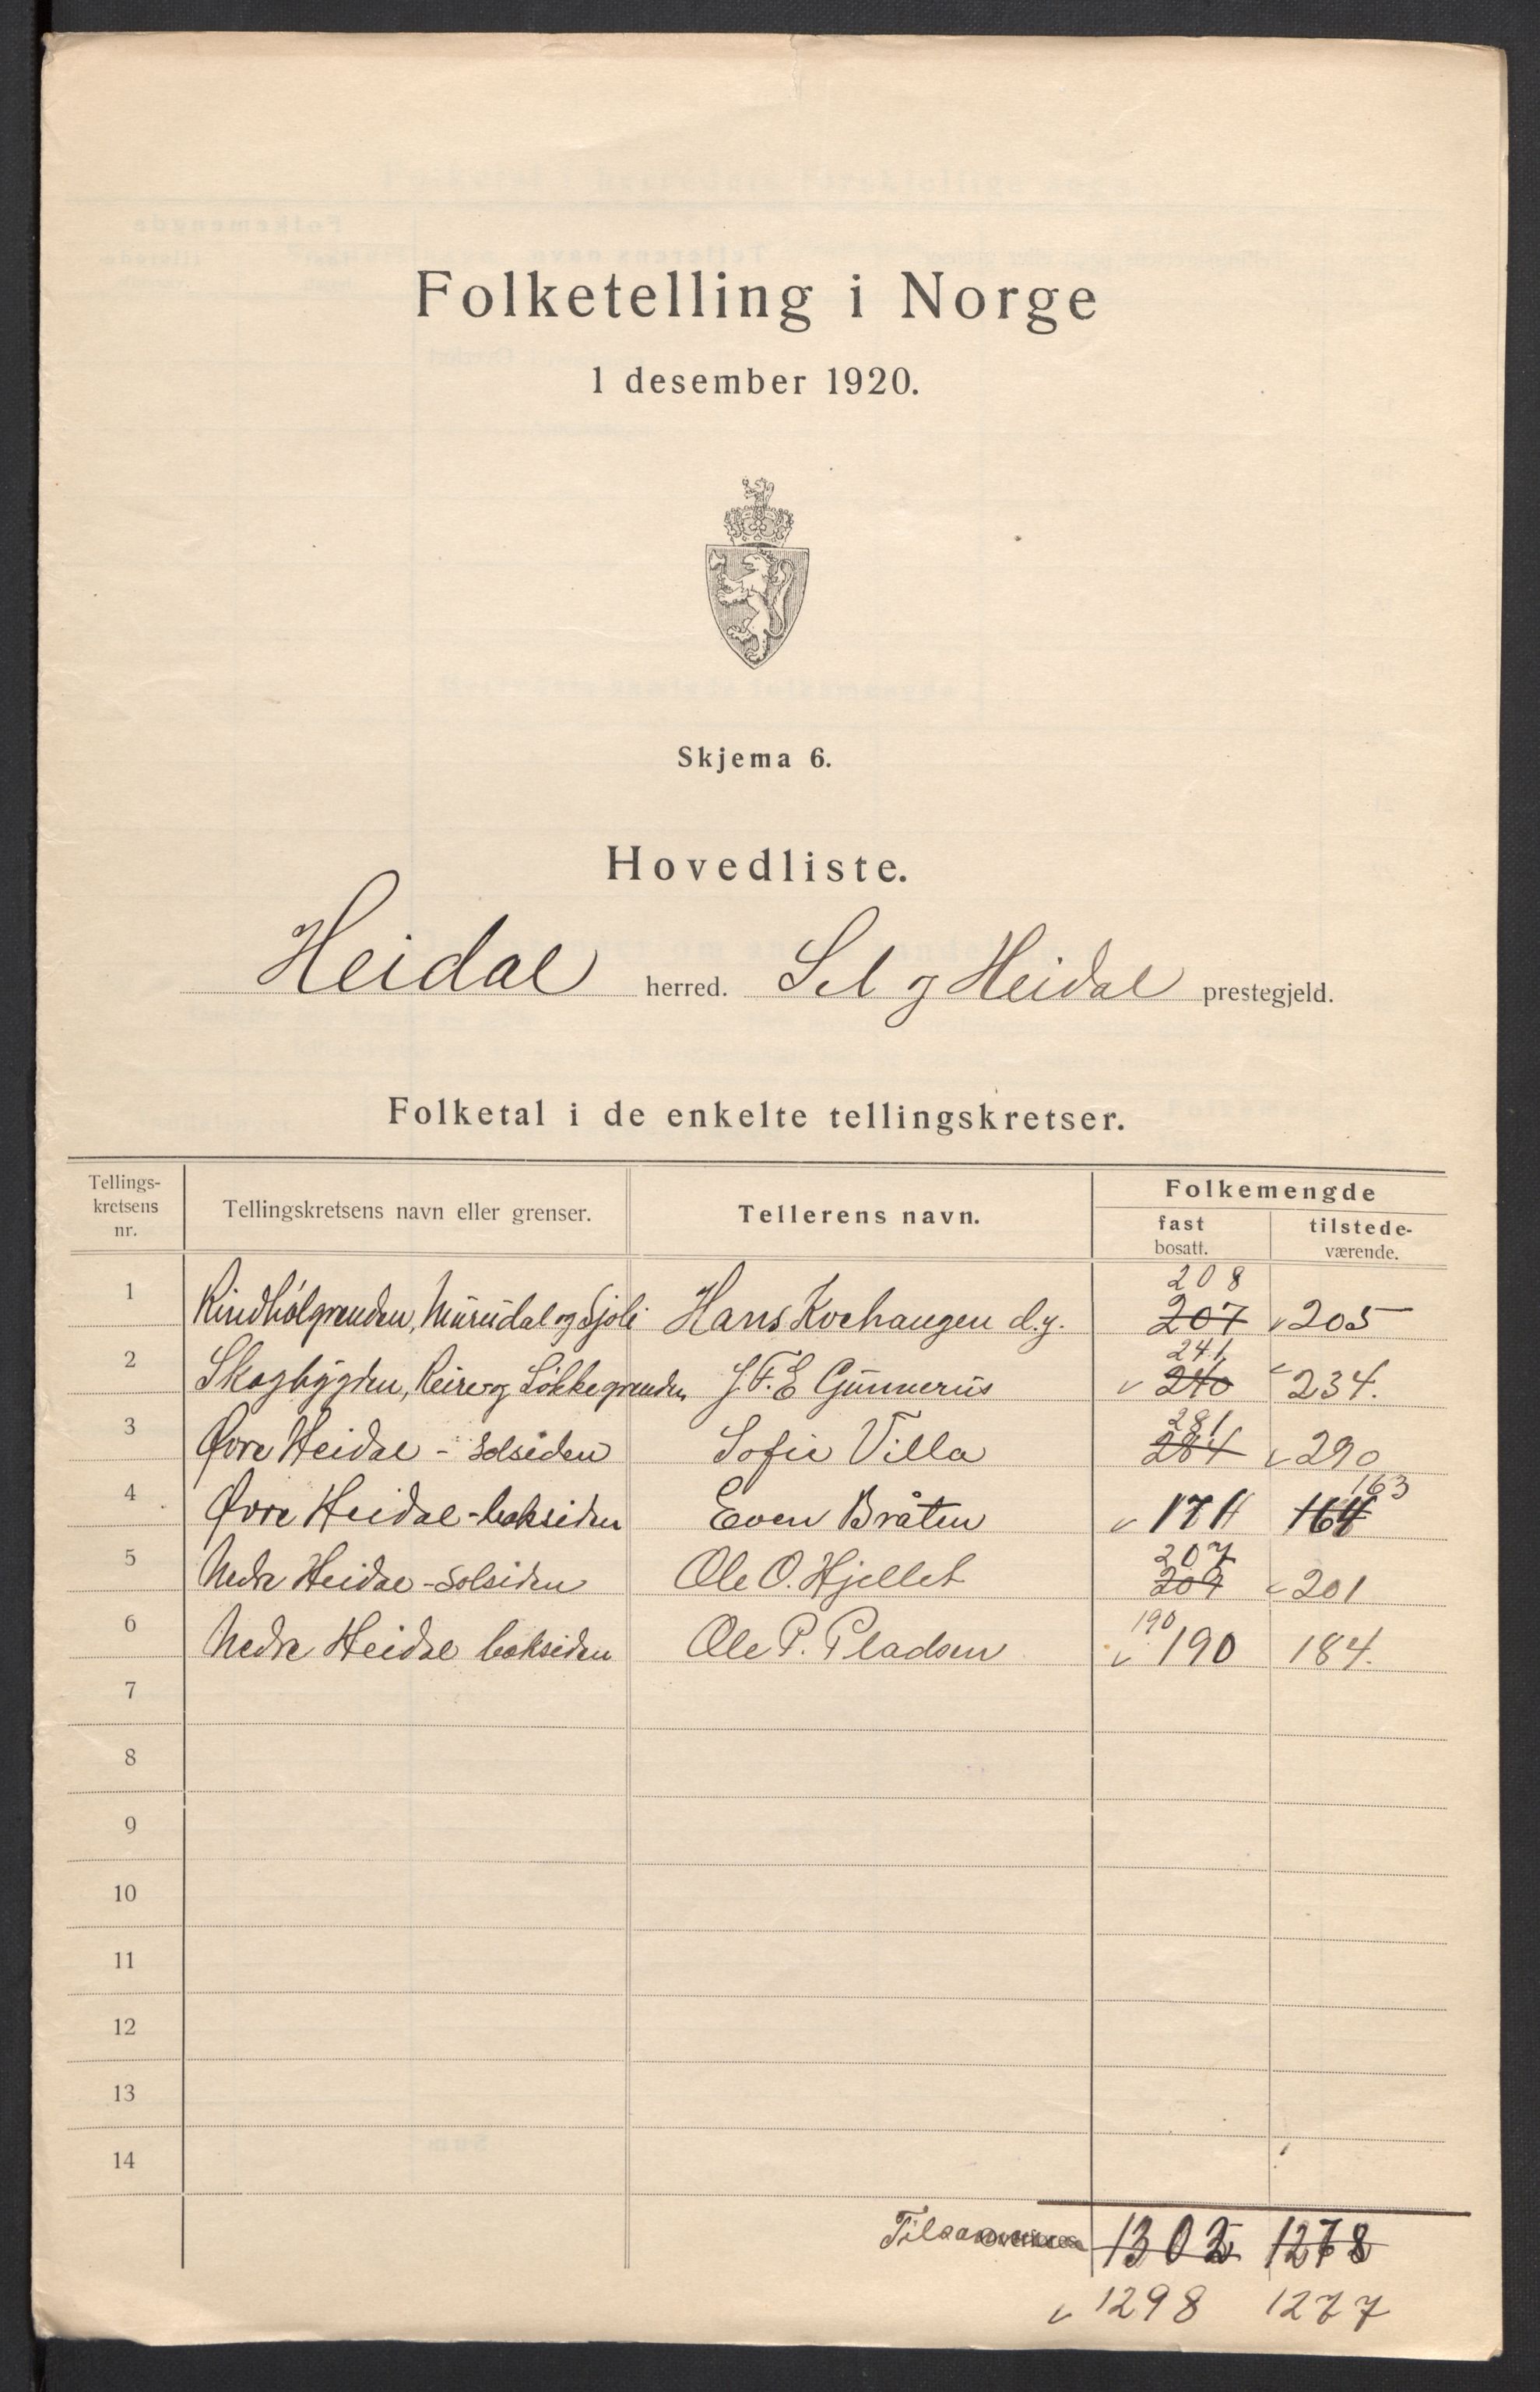 Folketelling i Norge
1 desember 1920.
Skjema 6.
Hovedliste.
Heidal herred. Sel og Heidal prestegjeld.
Folketal i de enkelte tellingskretser.
Tellings-
kretsens
nr.
Tellingskretsens navn eller grenser.
Tellerens navn.
Folkemengde
fast
bosatt.
tilstede-
værende.
208
1 Rindhølgrenden, Murudal og Sjoli Hans Kvehaugen d.y. 207 205
241
2 Skogbygden, Reire og Løkkegrenden J. F. E Gunnerus 240 234.
281
3 Øvre Heidal - Solsiden Sofie Villa 284 290
163
4 Øvre Heidal - baksiden Even Bråten 171 164
207
5 Nedre Heidal - Solsiden Ole O. Hjellet 209 201
190
6 Nedre Heidal baksiden Ole P. Pladsen 190 184.
7
8
9
10
11
12
13
14
Tilsammen 1302 1278
1298 1277